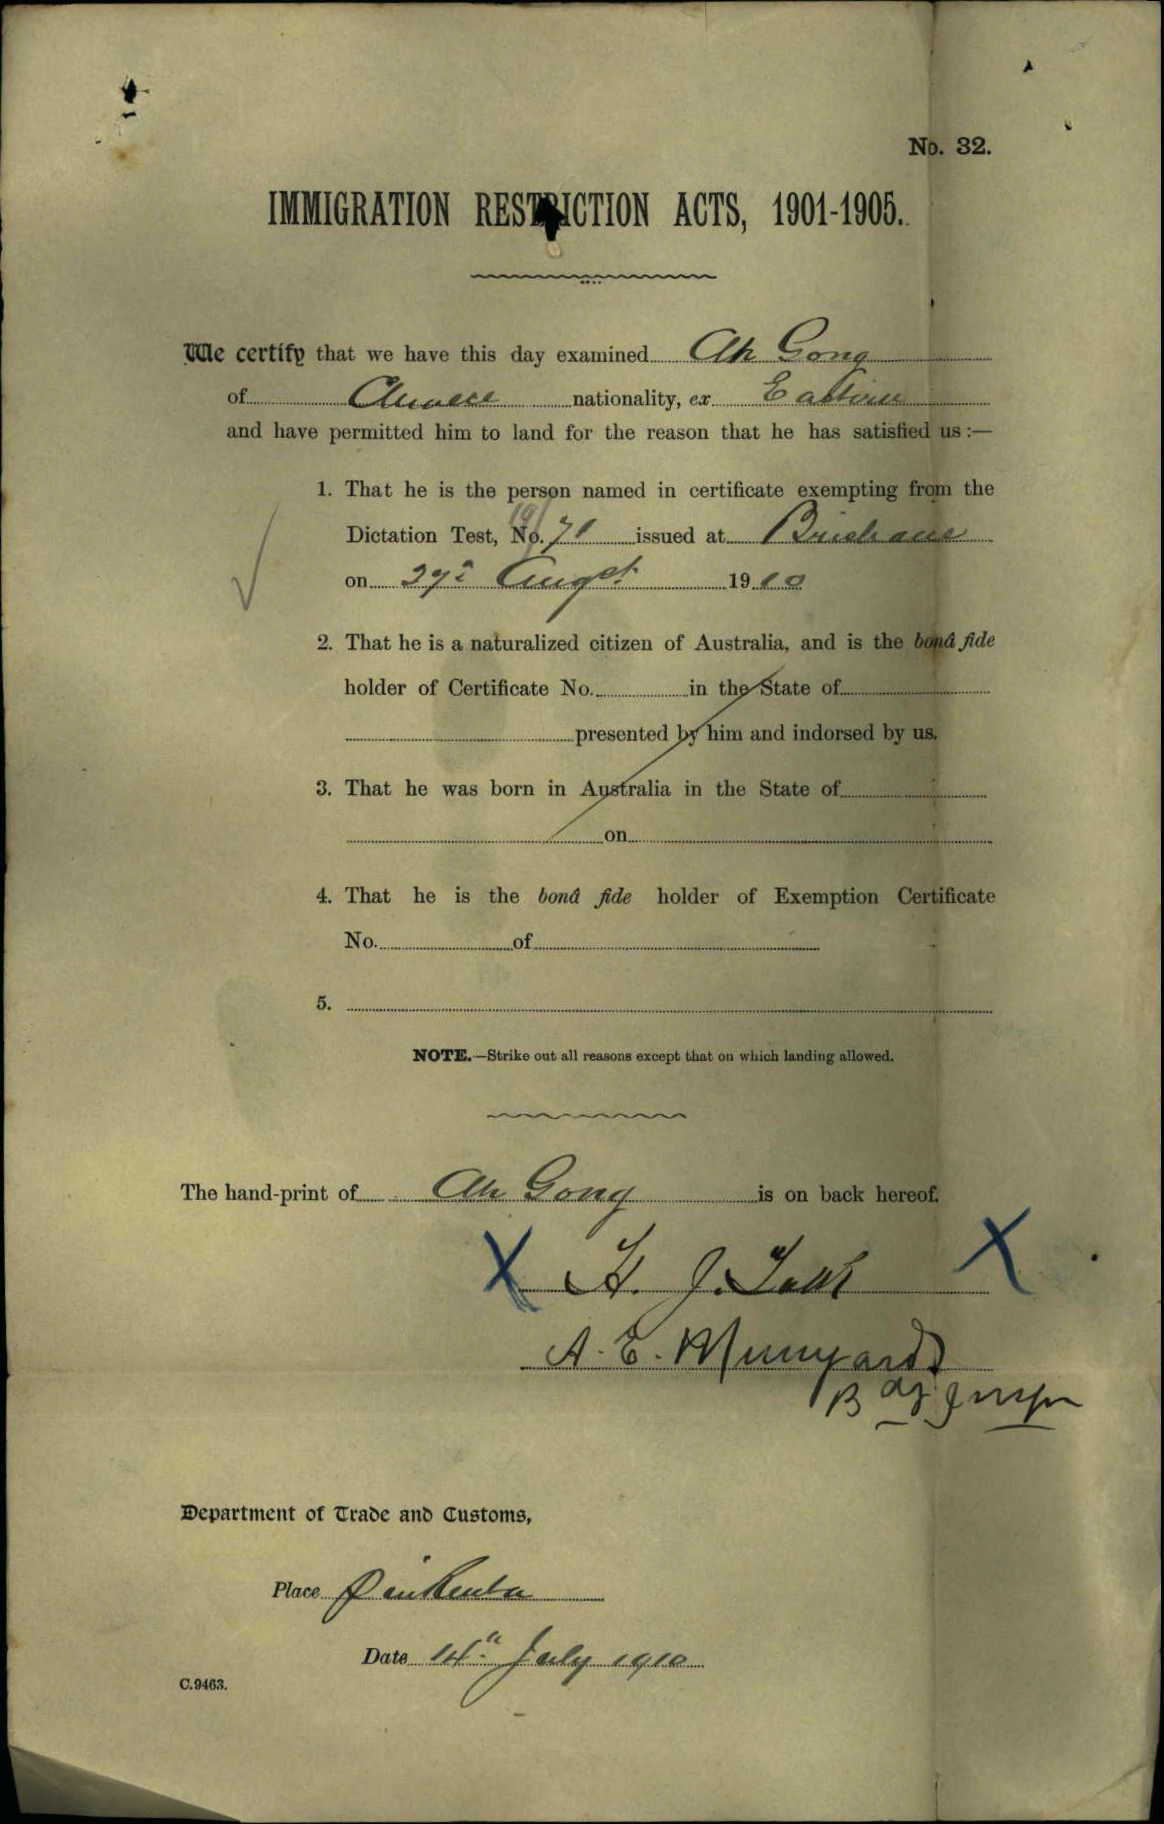 No. 32.
IMMIGRATION RESTRICTION ACTS, 1901-1905.
We certify that we have this day examined Ah Gong
of Chinese nationality, ex Eastern
and have permitted him to land for the reason that he has satisfied us:—
1. That he is the person named in certificate exempting from the
Dictation Test, No. 71 issued at Brisbane
on 27th Augst 1910
2. That he is a naturalized citizen of Australia, and is the bonâ fide
holder of Certificate No. in the State of
presented by him and indorsed by us.
3. That he was born in Australia in the State of
on
4. That he is the bonâ fide holder of Exemption Certificate
No. of
5.
NOTE.—Strike out all reasons except that on which landing allowed.
The hand-print of Ah Gong is on back hereof.
X H. J. X
A. E. Munyard
Department of Trade and Customs,
Place Pinkenba
Date 14th July 1910
C.9463.